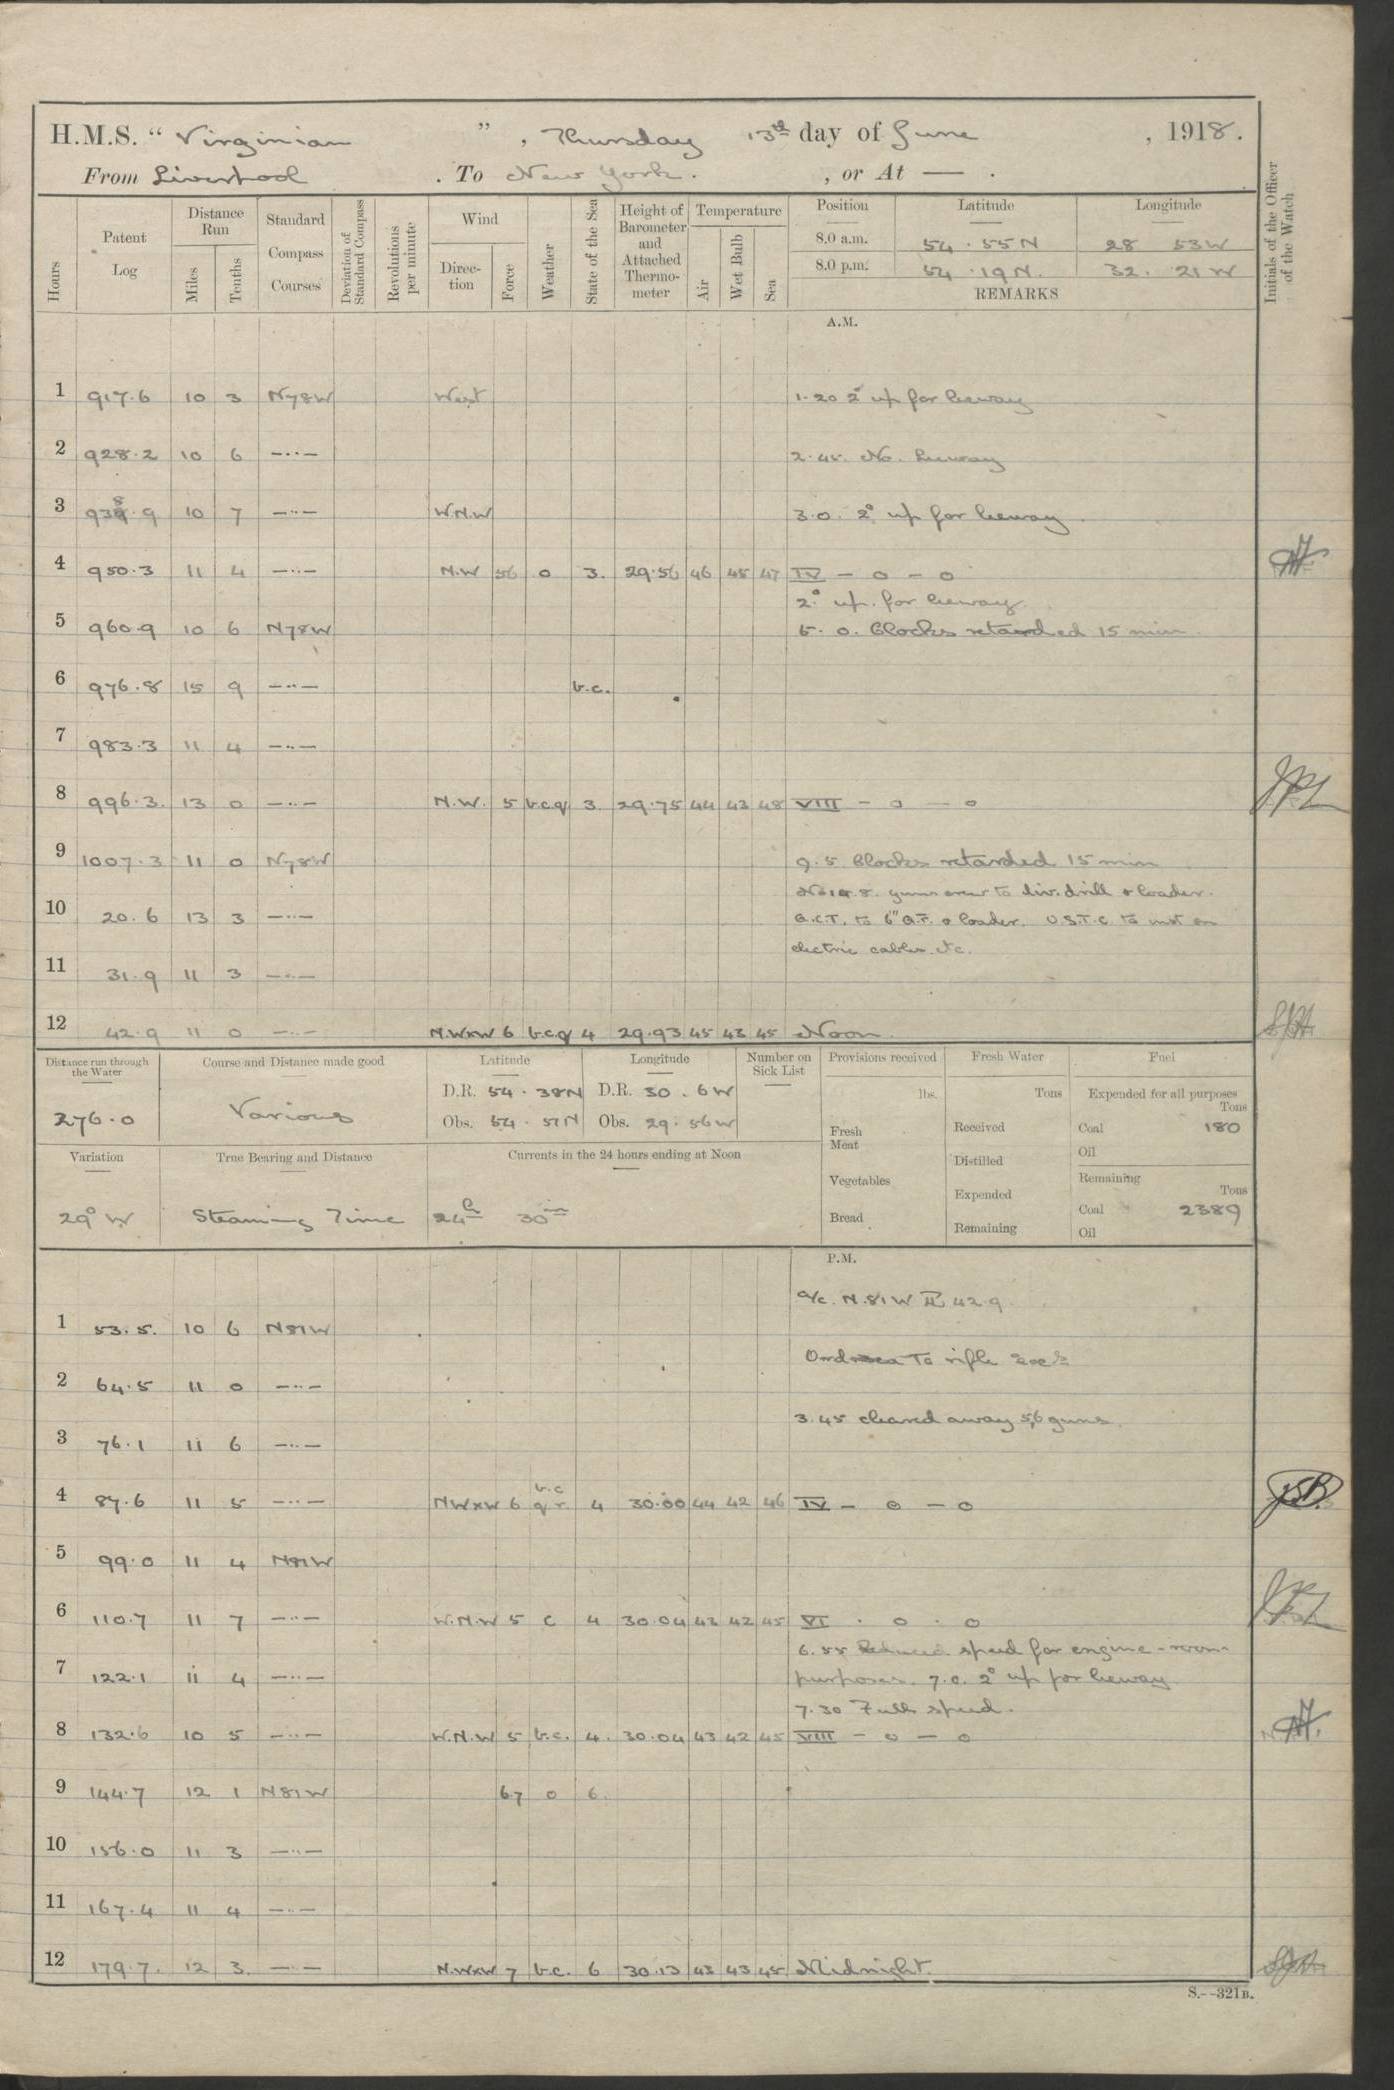 H.M.S. “ Virginian ” , Thursday 13th day of June , 1918.
From Liverpool . To New York. , or At — .
Hours Patent Log Distance Run Miles Tenths Standard Compass Courses Deviation of Standard Compass Revolutions per minute Wind Direction Force Weather State of the Sea Height of Barometer and Attached Thermometer Temperature Air Wet Bulb Sea Position Latitude Longitude Initials of the Officer of the Watch
8.0 a.m. 54 . 55 N 28 53 W
8.0 p.m. 54 . 19 N. 32 . 21 W
REMARKS
A.M.
1 917.6 10 3 N78W West 1.20 2° up for leeway
2 928.2 10 6 —··— 2.45. No. Leeway
3 938.9 10 7 —··— W.N.W 3.0. 2° up for leeway
4 950.3 11 4 —··— N.W 56 o 3. 29.56 46 45 47 IV – o – o
2° up. for leeway
5 960.9 10 6 N78W 5. 0. Clocks retarded 15 min
6 976.8 15 9 —··— b.c.
7 983.3 11 4 —··—
8 996.3. 13 0 —··— N.W. 5 b.c.q 3 29.75 44 43 48 VIII – o – o
9 1007.3 11 0 N78W 9.5 Clocks retarded 15 min
guns crew to div. drill & loader.
10 20.6 13 3 —··— G.C.T. to 6" Q.F. & loader. U.S.T.C. to inst on
electric cables etc.
11 31.9 11 3 —··—
12 42.9 11 0 —··— N.WxW 6 b.c.q 4 29.93 45 43 45 Noon.
Distance run through the Water Course and Distance made good Latitude Longitude Number on Sick List Provisions received Fresh Water Fuel
276.0 Various D.R. 54 . 38N D.R. 30 . 6W lbs. Tons Expended for all purposes Tons
Obs. 54 . 51N Obs. 29 . 56W Fresh Meat Received Coal 180
Distilled Oil
Variation True Bearing and Distance Currents in the 24 hours ending at Noon Vegetables Remaining Tons
29° W Steaming Time 24h 30m Expended Coal 2389
Bread Remaining Oil
P.M.
a/c. N.81W 42.9
1 53.5. 10 6 N81W
to rifle
2 64.5 11 0 —··—
3.45 cleared away 5,6 guns.
3 76.1 11 6 —··—
4 87.6 11 5 —··— NWxW 6 b.c q r 4 30.00 44 42 46 IV – o – o
5 99.0 11 4 N81W
6 110.7 11 7 —··— W.N.W 5 c 4 30.04 43 42 45 VI . o . o
6.55 Reduced speed for engine-room
7 122.1 11 4 —··— purposes. 7.0. 2° up for leeway
7.30 Full speed.
8 132.6 10 5 —··— W.N.W 5 b.c. 4. 30.04 43 42 45 VIII – o – o
9 144.7 12 1 N81W 67 o 6.
10 156.0 11 3 —··—
11 167.4 11 4 —··—
12 179.7. 12 3. —··— N.WxW 7 b.c. 6 30.13 43 43 45 Midnight.
S.--321B.